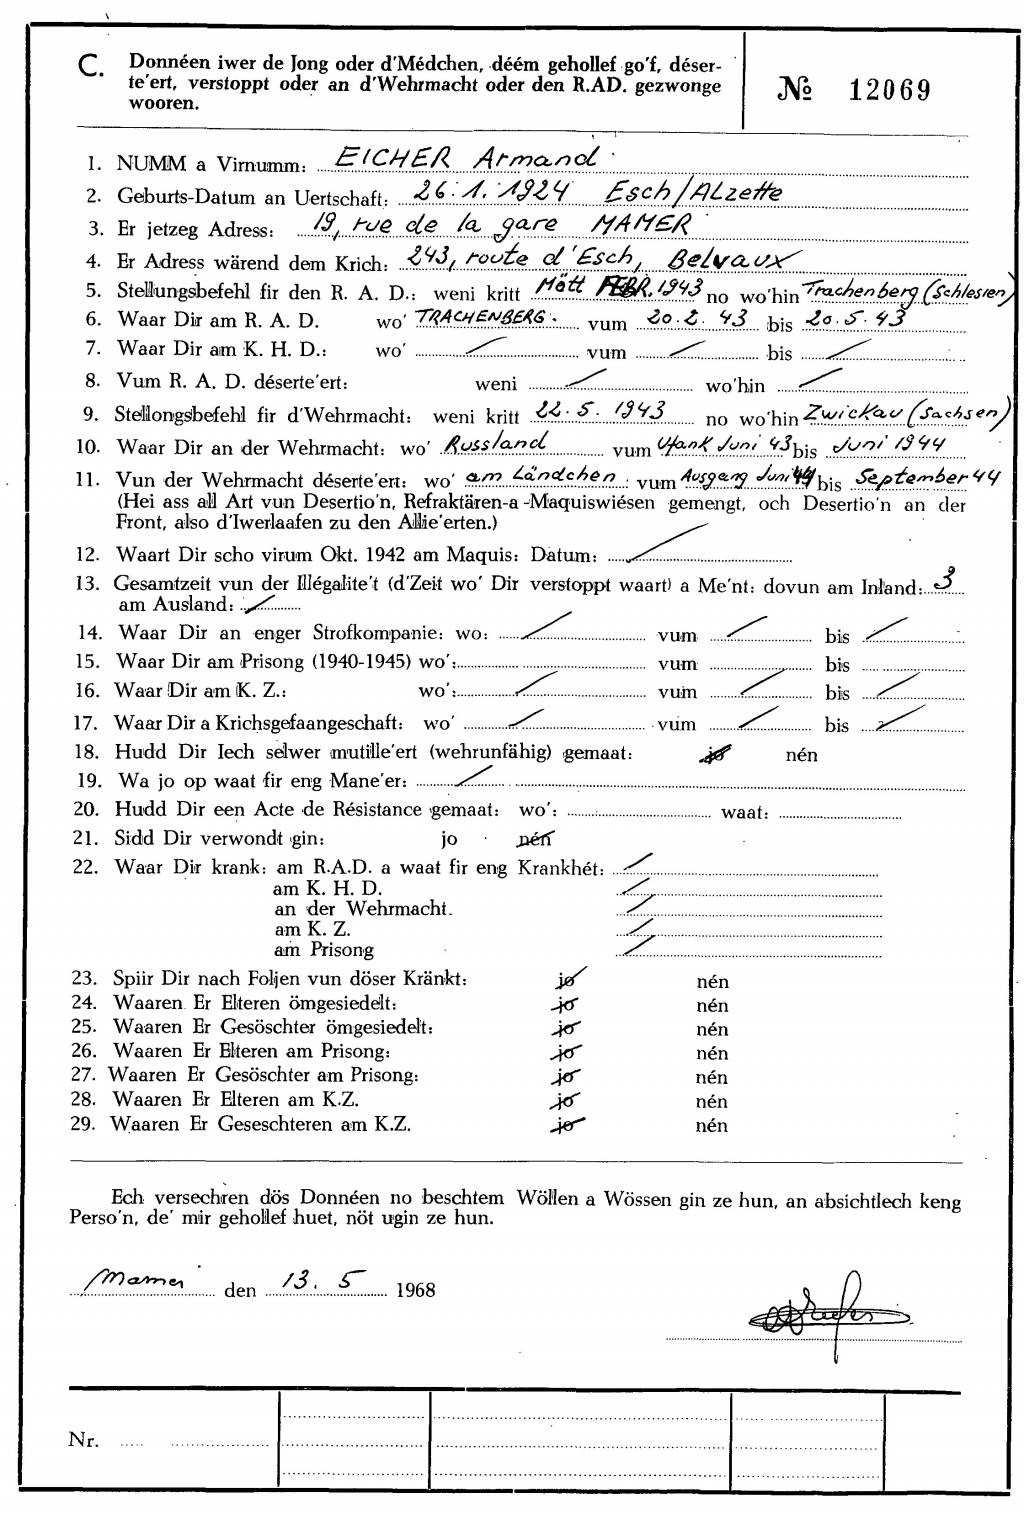 C. Donnéen iwer de Jong oder d'Médchen, déém gehollef go'f, déser-
te'ert, verstoppt oder an d'Wehrmacht oder den R.AD. gezwonge
wooren.
№ 12069
1. NUMM a Virnumm: EICHER Armand
2. Geburts-Datum an Uertschaft: 26.1.1924 Esch/Alzette
3. Er jetzeg Adress: 19, rue de la gare MAMER
4. Er Adress wärend dem Krich: 243, route d'Esch, Belvaux
5. Stellungsbefehl fir den R. A. D.: weni kritt Mött FEBR. 1943 no wo'hin Trachenberg (Schlesien)
6. Waar Dir am R. A. D. wo' TRACHENBERG. vum 20.2.43 bis 20.5.43
7. Waar Dir am K. H. D.: wo' / vum / bis /
8. Vum R. A. D. déserte'ert: weni / wo'hin /
9. Stellongsbefehl fir d'Wehrmacht: weni kritt 22.5.1943 no wo'hin Zwickau (Sachsen)
10. Waar Dir an der Wehrmacht: wo' Russland vum Ufank Juni 43 bis Juni 1944
11. Vun der Wehrmacht déserte'ert: wo' am Ländchen vum Ausgang Juni 44 bis September 44
(Hei ass all Art vun Desertio'n, Refraktären-a-Maquiswiésen gemengt, och Desertio'n an der
Front, also d'Iwerlaafen zu den Allie'erten.)
12. Waart Dir scho virum Okt. 1942 am Maquis: Datum: /
13. Gesamtzeit vun der Illégalite't (d'Zeit wo' Dir verstoppt waart) a Me'nt: dovun am Inland: 3
am Ausland: /
14. Waar Dir an enger Strofkompanie: wo: / vum / bis /
15. Waar Dir am Prisong (1940-1945) wo': vum bis
16. Waar Dir am K. Z.: wo': / vum / bis /
17. Waar Dir a Krichsgefaangeschaft: wo' / vum / bis /
18. Hudd Dir Iech selwer mutille'ert (wehrunfähig) gemaat: jo nén
19. Wa jo op waat fir eng Mane'er: /
20. Hudd Dir een Acte de Résistance gemaat: wo': waat:
21. Sidd Dir verwondt gin: jo nén
22. Waar Dir krank: am R.A.D. a waat fir eng Krankhét: /
am K. H. D. /
an der Wehrmacht. /
am K. Z. /
am Prisong /
23. Spiir Dir nach Foljen vun döser Kränkt: jo nén
24. Waaren Er Elteren ömgesiedelt: jo nén
25. Waaren Er Gesöschter ömgesiedelt: jo nén
26. Waaren Er Elteren am Prisong: jo nén
27. Waaren Er Gesöschter am Prisong: jo nén
28. Waaren Er Elteren am K.Z. jo nén
29. Waaren Er Geseschteren am K.Z. jo nén
Ech versechren dös Donnéen no beschtem Wöllen a Wössen gin ze hun, an absichtlech keng
Perso'n, de' mir gehollef huet, nöt ugin ze hun.
Mamer den 13.5 1968
Nr.